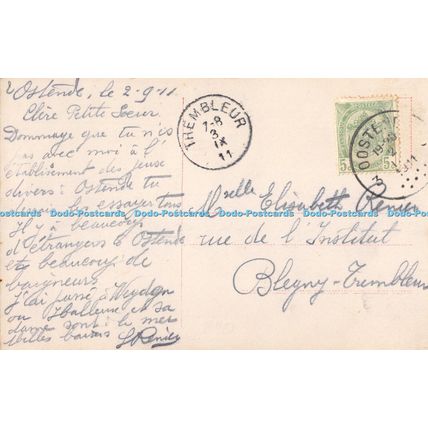 Ostende, le 2-9-11
Chère Petite Soeur
Dommage que tu n'es
pas avec moi à l'
établissement des jeux
divers à Ostende tu
les essayer tous
Il y a beaucoup
d'étrangers à Ostende
et beaucoup de
baigneurs
J'ai passé à
ou et sa
dame sont à la mer
Milles baisers
TREMBLEUR
7-8
3
IX
11
OOSTENDE
5
Melle Elisabeth Renier
rue de l'Institut
Blegny-Trembleur
Dodo-Postcards Dodo-Postcards Dodo-Postcards Dodo-Postcards Dodo-Postcards